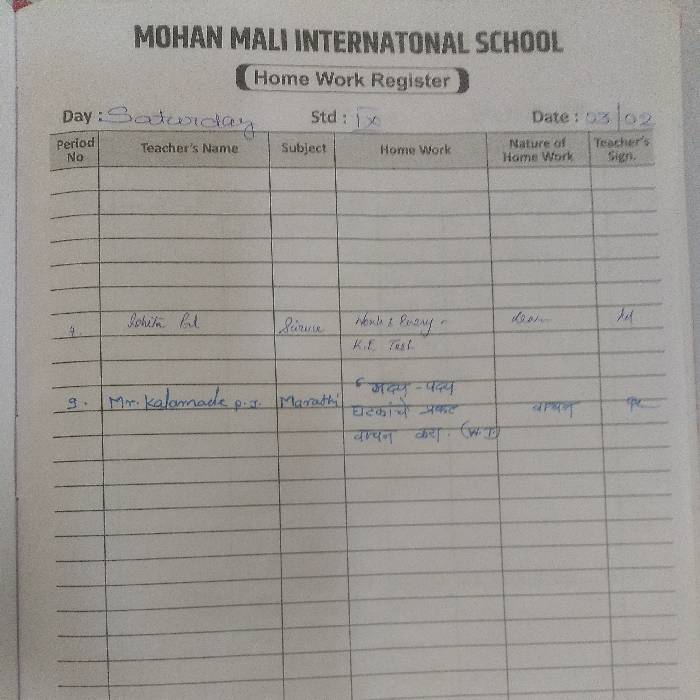 MOHAN MALI INTERNATONAL SCHOOL
Home Work Register
Day : Saturday Std : IX Date : 03/02
Period No Teacher's Name Subject Home Work Nature of Home Work Teacher's Sign.
4. Science Work & Energy - learn
K.E Test
गद्य - पद्य
9. Mr. Kalamade P. J. Marathi घटकांचे प्रकट वाचन
वाचन करा. (W.J)